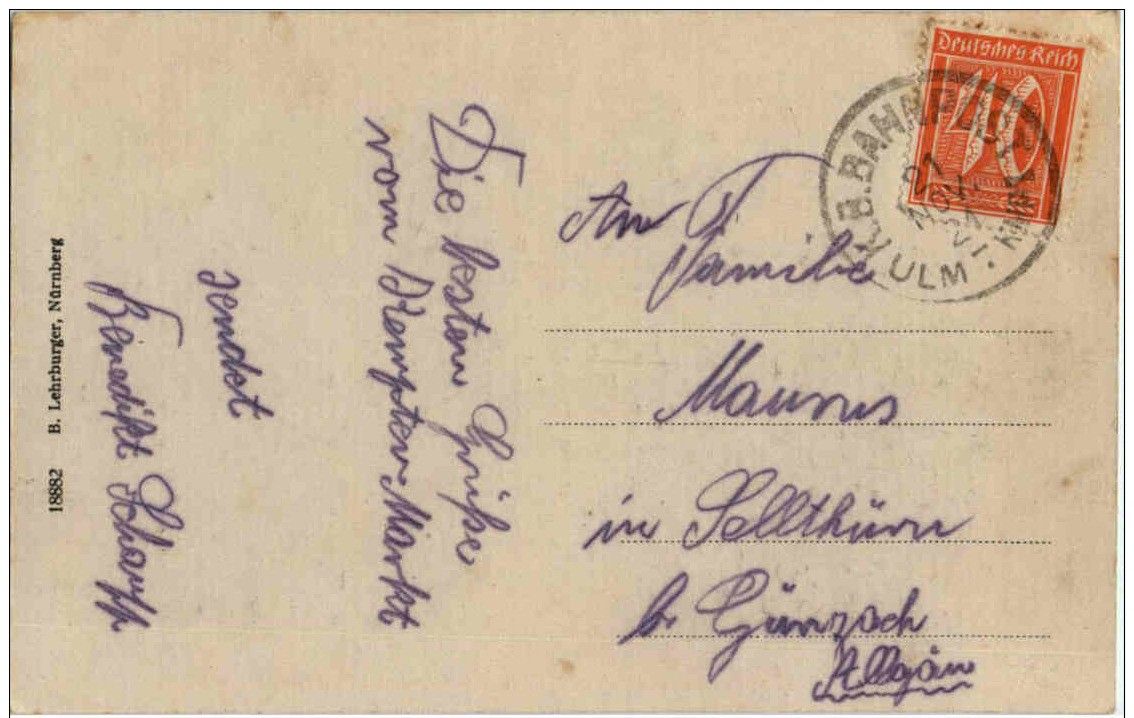 Die besten Grüße
vom Kempter Markt
sendet
Benedikt Scharpf
18882 B. Lehrburger, Nürnberg
Deutsches Reich
40
K.B. BAHNPOST
21
NOV.
ULM
An
Familie
Maurus
in Sellthürn
b. Günzach
Allgäu